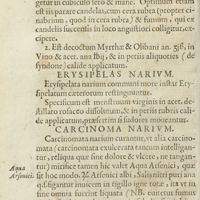 igitur in cubiculo ferè & mane. Optimum etiam
est id paretur candelarum ex cera rubra (propter ci-
nabrium, quod in cera rubra) & fumum, qui ex
candelis succensis in loco angustiori colligitur, ex-
cipere.
2. Est decoctum Myrrhæ & Olibani an. ʒiß. in
Vino & acet. ana ℔ij. & in petiis aliquoties (de
syndone) calide applicatum.
ERYSIPELAS NARIUM.
Erysipelata narium communi more instar Ery-
sipelatum cæterorum restinguuntur.
Specificum est menstruum virginis in acet. de-
stillato rosato dissolutum, & in petiis rubris cali-
de applicatum, præsertim si sudores imbuerit.
CARCINOMA NARIUM.
Carcinomata narium curantur, ut alia carcino-
mata (carcinomata exulcerata tantum intelligan-
tur, reliqua quæ sine dolore & vlcere, ne tangan-
tur) mirifice tamen iis valet Aqua Arsenici, quæ
sit hoc modo. Arsenici albi, Salis nitri puri ana
q. s. figantur inuicem in sigillo igne rotæ, ita ut
in fine omnia sumul liquata (NB. euitentur fumus
Aqua
Arsenici.